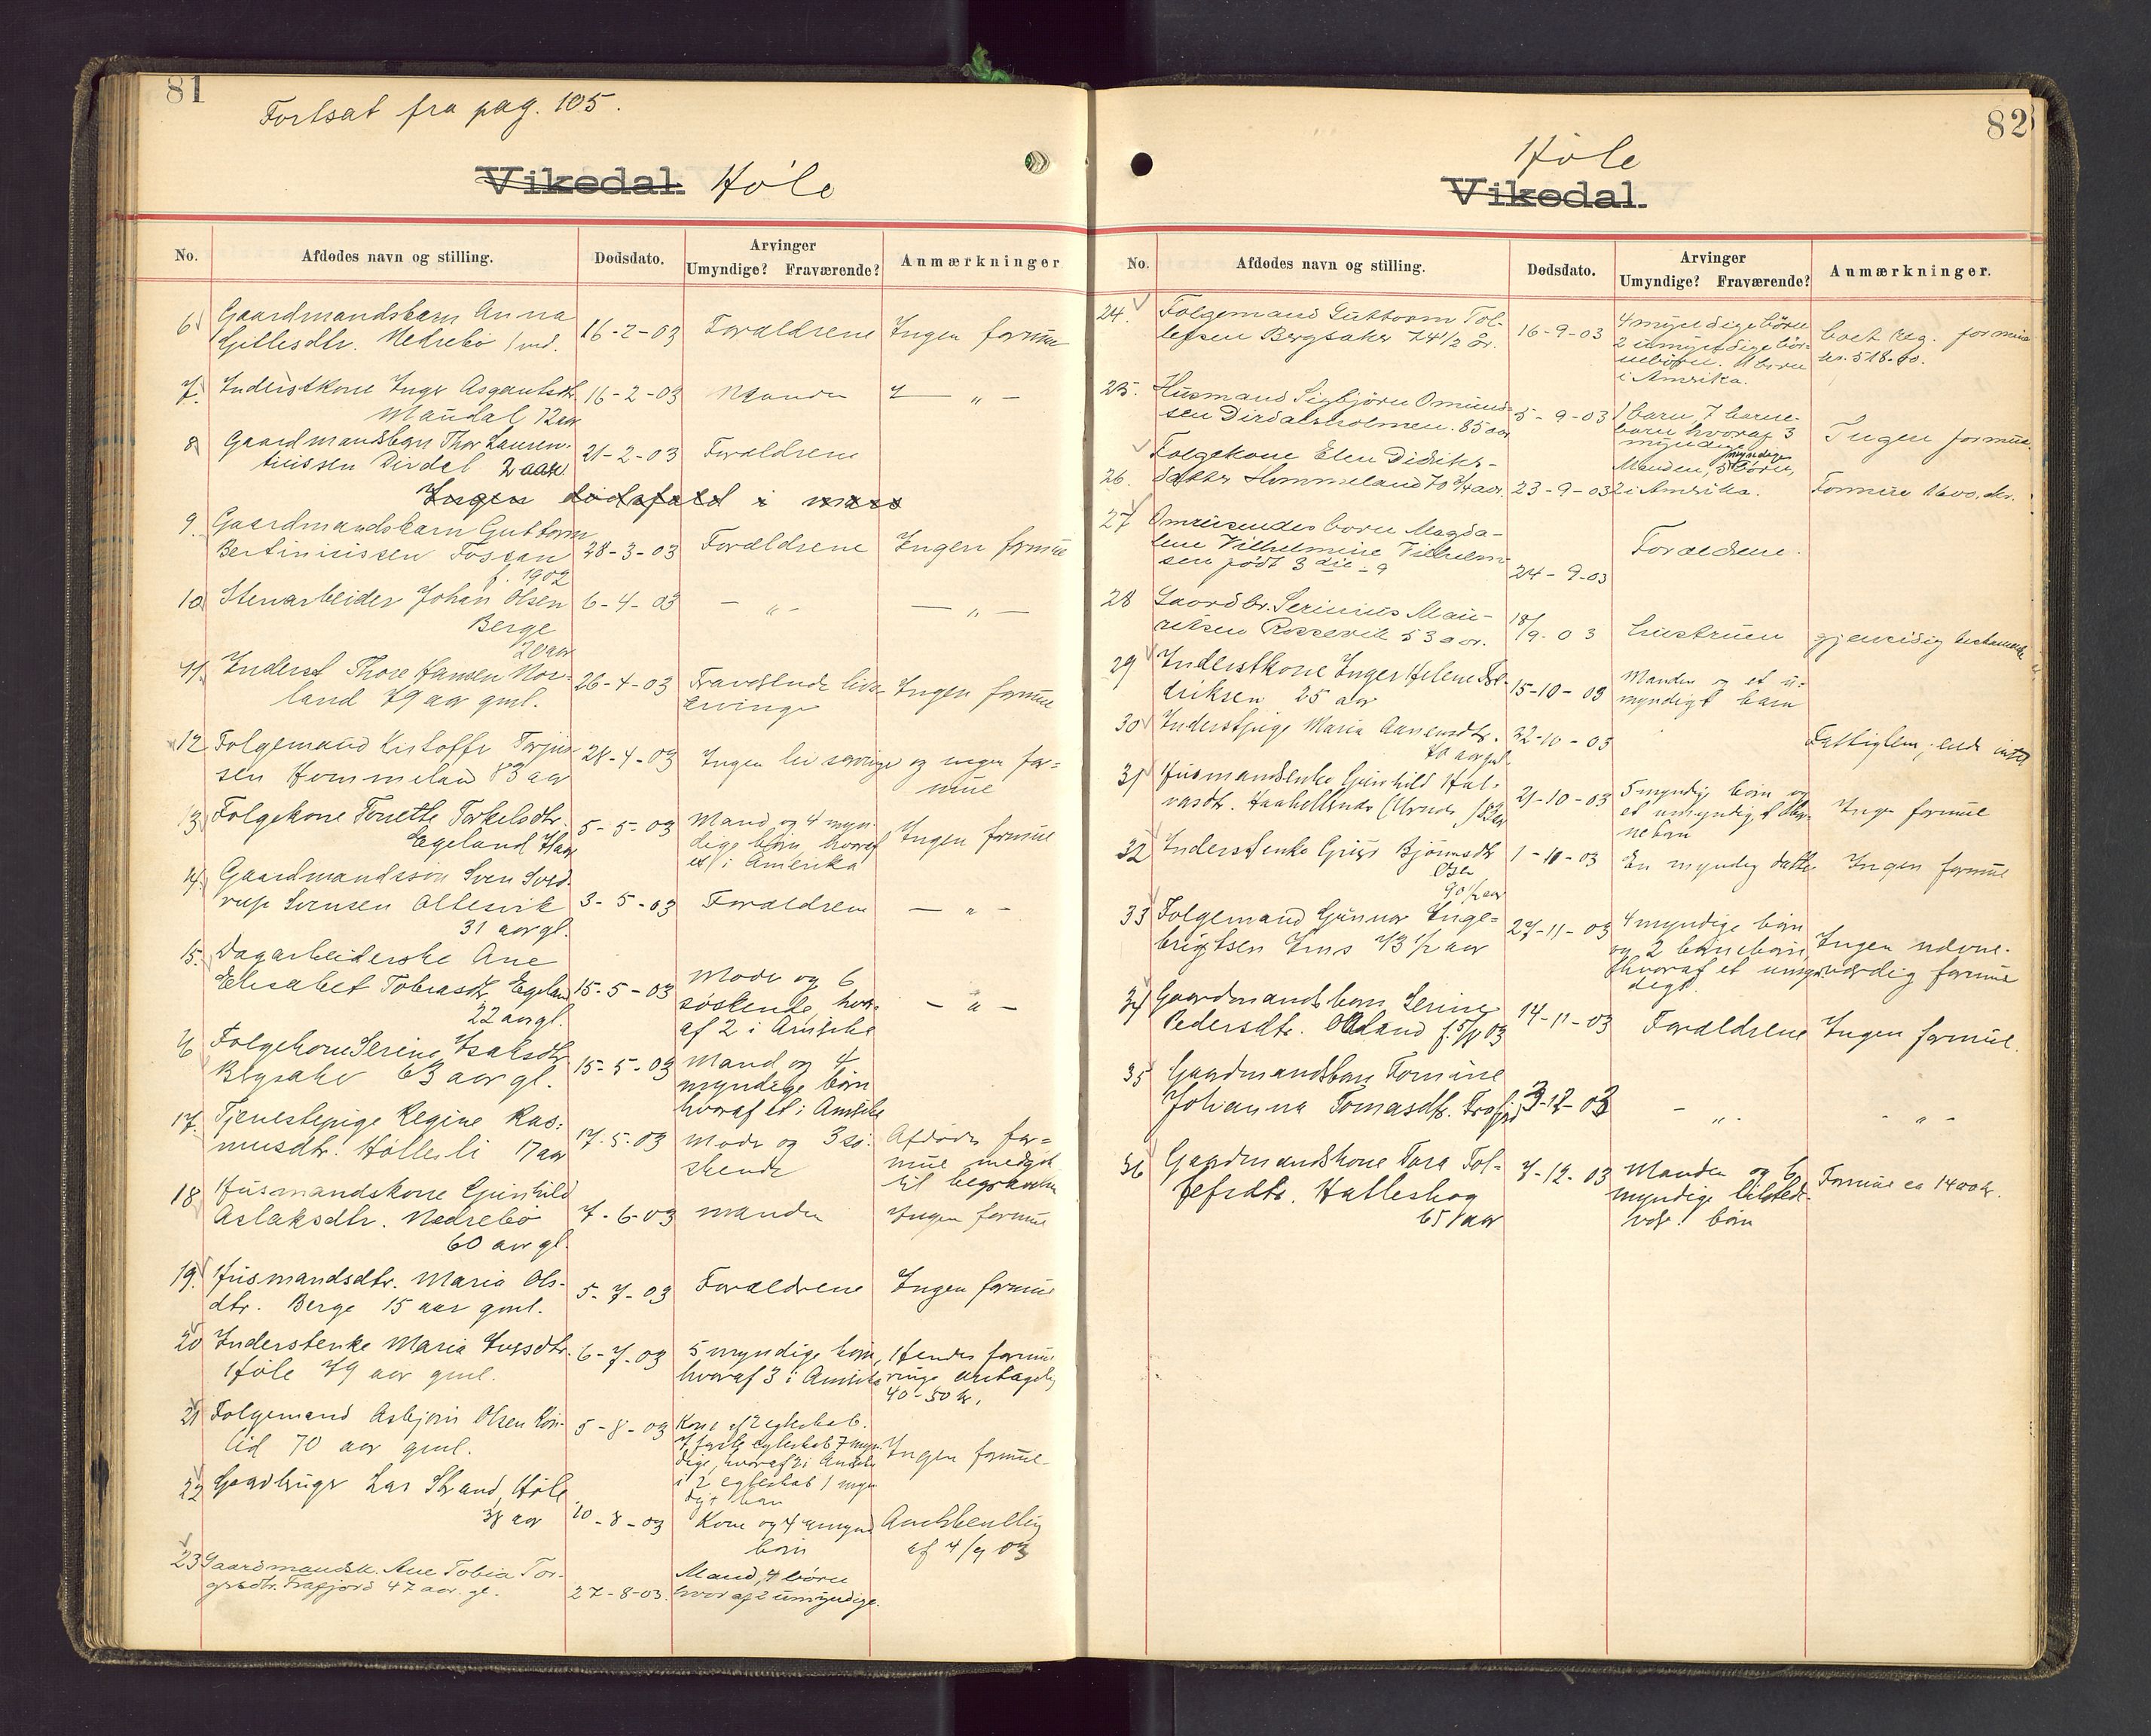 81
Fortsat fra pag. 105.
Vikedal. Høle
No. Afdødes navn og stilling. Dødsdato. Arvinger Umyndige? Fraværende? Anmærkninger
6 Gaardmandsbarn Anna 16-2-03 Forældrene Ingen formue
Nedrebø
7. Inderstkone Inger 16-2-03 Manden — „ —
Maudal 72 aar
8 Gaardmandsbarn Thor Lauren- 21-2-03 Forældrene
tiussen Dirdal 2 aar
Ingen dødsfald i mars
9. Gaardmandsbarn Guttorm
Bertiniussen Fossan 28-3-03 Forældrene Ingen formue
f. 1902
10 Stenarbeider Johan Olsen 6-4-03 — „ — — „ —
Berge
20 aar
11. Inderst Thore Hansen Nor- 26-4-03 Fraværende Ingen formue
land 79 aar gml. arvinger
12 Folgemand Kristoffer Torju- 28-4-03 Ingen livsarvinger og ingen for-
sen Hommeland 83 aar mue
13 Folgekone Torkelsdtr. 5-5-03 Mand og 4 myn- Ingen formue
Egeland dige børn, hvoraf
et i Amerika
14. Gaardmandssøn Sven Sver-
rup Svensen Oltesvik 3-5-03 Forældrene — „ —
31 aar gl.
15. Dagarbeiderske Ane
Elisabet Tobiasdtr Egeland 15-5-03 Moder og 6 — „ —
22 aar gl. søskende, hvor-
af 2 i Amerika
16 Folgekone Serine Isaksdtr 15-5-03 Mand og 4
Bergsaker 63 aar gl. myndige børn
hvoraf et i Amerika
17. Tjenestepige Regine Ras- 17-5-03 Moder og 3 sø- Afdødes for-
musdtr. Høllesli 17 aar skende mue medgik
til begravelsen
18 Husmandskone Gunhild
Aslaksdtr. Nedrebø 7-6-03 Manden Ingen formue
60 aar gl.
19. Husmandsdtr. Maria Ols- 5-7-03 Forældrene Ingen formue
dtr. Berge 15 aar gml.
20 Inderstenke Maria 6-7-03 5 myndige børn, Hendes formue
Høle 79 aar gml. hvoraf 3 i Amerika ringe antagelig
40-50 kr.
21 Folgemand Asbjørn Olsen 5-8-03 Kone af 2 egteskab.
lid 70 aar gml. I første egteskab 7 myn- Ingen formue
dige, hvoraf 2 i Amerika
i 2 egteskab 1 myn-
digt barn
22 Gaardbruger Lars Strand, Høle
38 aar 10-8-03 Kone og 4 umynd.
børn af 4/9 03
23 Gaardmandsk. Ane Tobia Tor- Mand, 4 børn
gersdtr. Frafjord 47 aar. gl. 27-8-03. hvoraf 2 umyndige.
82
Høle
Vikedal.
No. Afdødes navn og stilling. Dødsdato. Arvinger Umyndige? Fraværende? Anmærkninger.
24. Folgemand Guttorm Tol- 16-9-03 4 myndige børn
lefsen Bergsaker 74 1/2 år. 2 umyndige bør- boet reg. formue
nebørn. 1 barn kr. 518.60.
i Amerika.
25. Husmand Sigbjørn Omund- 5-9-03 1 barn, 7 barne-
sen Dirdalsholmen. 85 aar barn hvoraf 3 Ingen formue
myndige
Folgekone Elen Didriks- Manden, 5 myndige børn,
26. datter Hommeland 70 3/4 aar. 23-9-03 2 i Amerika. Formue 1600 kr.
27 Omreisendes barn Magda-
lene Vilhelmine Vilhelm- Forældrene.
sen født 3 die - 9 24-9-03
28 Gaardbr. Serinius Mau- 18/9-03 Enstruen gjensidig testamente
ritsen Rossevik 53 aar.
29 Inderstkone Inger Helene 15-10-03 Manden og et u-
driksen 25 aar myndigt barn
30 Inderstpige Maria Aanensdtr. 22-10-03 Fattiglem, eide intet
31 Husmandsenke Gunhild Hal- 21-10-03 5 myndige børn og Ingen formue
vorsdtr. et umyndig
nebarn
32 Inderstenke Guri Bjørnsdtr 1-10-03 En myndig datter Ingen formue
90 1/2 aar
33 Folgemand Gunnar Inge- 27-11-03 4 myndige børn
brigtsen Ims 73 1/2 aar og 2 barnebørn, Ingen nævne-
hvoraf et umyn- værdig formue
digt.
34 Gaardmandsbarn Serine 14-11-03 Forældrene Ingen formue.
Pedersdtr.
35 Gaardmandsbarn Tomine
Johanna Tomasdtr. Frafjord 3-12-03 — „ — — „ —
36 Gaardmandskone Tora Tol- 7-12-03 Manden og 6 Formue ca 1400 kr.
lefsdtr. Halleskog myndige tilstede-
65 aar vær. børn